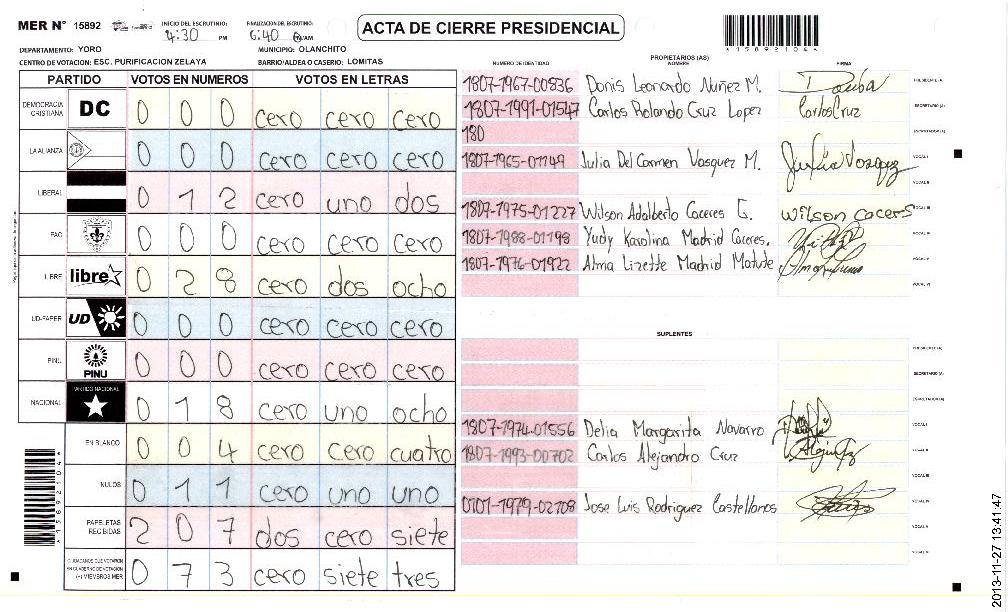 MER N° 15892
INICIO DEL ESCRUTINIO: 4:30 PM
FINALIZACION DEL ESCRUTINIO: 6:40 /AM
ACTA DE CIERRE PRESIDENCIAL
*15892104*
DEPARTAMENTO: YORO
MUNICIPIO: OLANCHITO
CENTRO DE VOTACION: ESC. PURIFICACION ZELAYA
BARRIO/ALDEA O CASERIO: LOMITAS
PARTIDO VOTOS EN NUMEROS VOTOS EN LETRAS
DEMOCRACIA CRISTIANA DC 0 0 0 cero cero cero
LA ALIANZA 0 0 0 cero cero cero
LIBERAL 0 1 2 cero uno dos
FAO 0 0 0 cero cero cero
LIBRE libre 0 2 8 cero dos ocho
UD-FAPER UD 0 0 0 cero cero cero
PINU PINU 0 0 0 cero cero cero
NACIONAL PARTIDO NACIONAL 0 1 8 cero uno ocho
EN BLANCO 0 0 4 cero cero cuatro
NULOS 0 1 1 cero uno uno
PAPELETAS RECIBIDAS 2 0 7 dos cero siete
CIUDADANOS QUE VOTARON EN CUADERNO DE VOTACION (+) MIEMBROS MER 0 7 3 cero siete tres
*15892104*
PROPIETARIOS (AS)
NUMERO DE IDENTIDAD NOMBRE FIRMA
1807-1967-00836 Donis Leonardo Nuñez M. PRESIDENTE (A)
1807-1991-01547 Carlos Rolando Cruz Lopez Carlos Cruz SECRETARIO (A)
180 ESCRUTADOR (A)
1807-1965-01149 Julia Del Carmen Vasquez M. Julia Vazquez VOCAL I
VOCAL II
1807-1975-01227 Wilson Adalberto Caceres C. Wilson cacers VOCAL III
1807-1988-01198 Yudy Karolina Madrid Caceres. VOCAL IV
1807-1976-01922 Alma Lizette Madrid Matute VOCAL V
VOCAL VI
SUPLENTES
PRESIDENTE (A)
SECRETARIO (A)
ESCRUTADOR (A)
1807-1974-01556 Delia Margarita Navarro VOCAL I
1807-1993-00702 Carlos Alejandro Cruz VOCAL II
VOCAL III
0101-1979-02708 Jose Luis Rodriguez Castellanos VOCAL IV
VOCAL V
VOCAL VI
2013-11-27 13:41:47